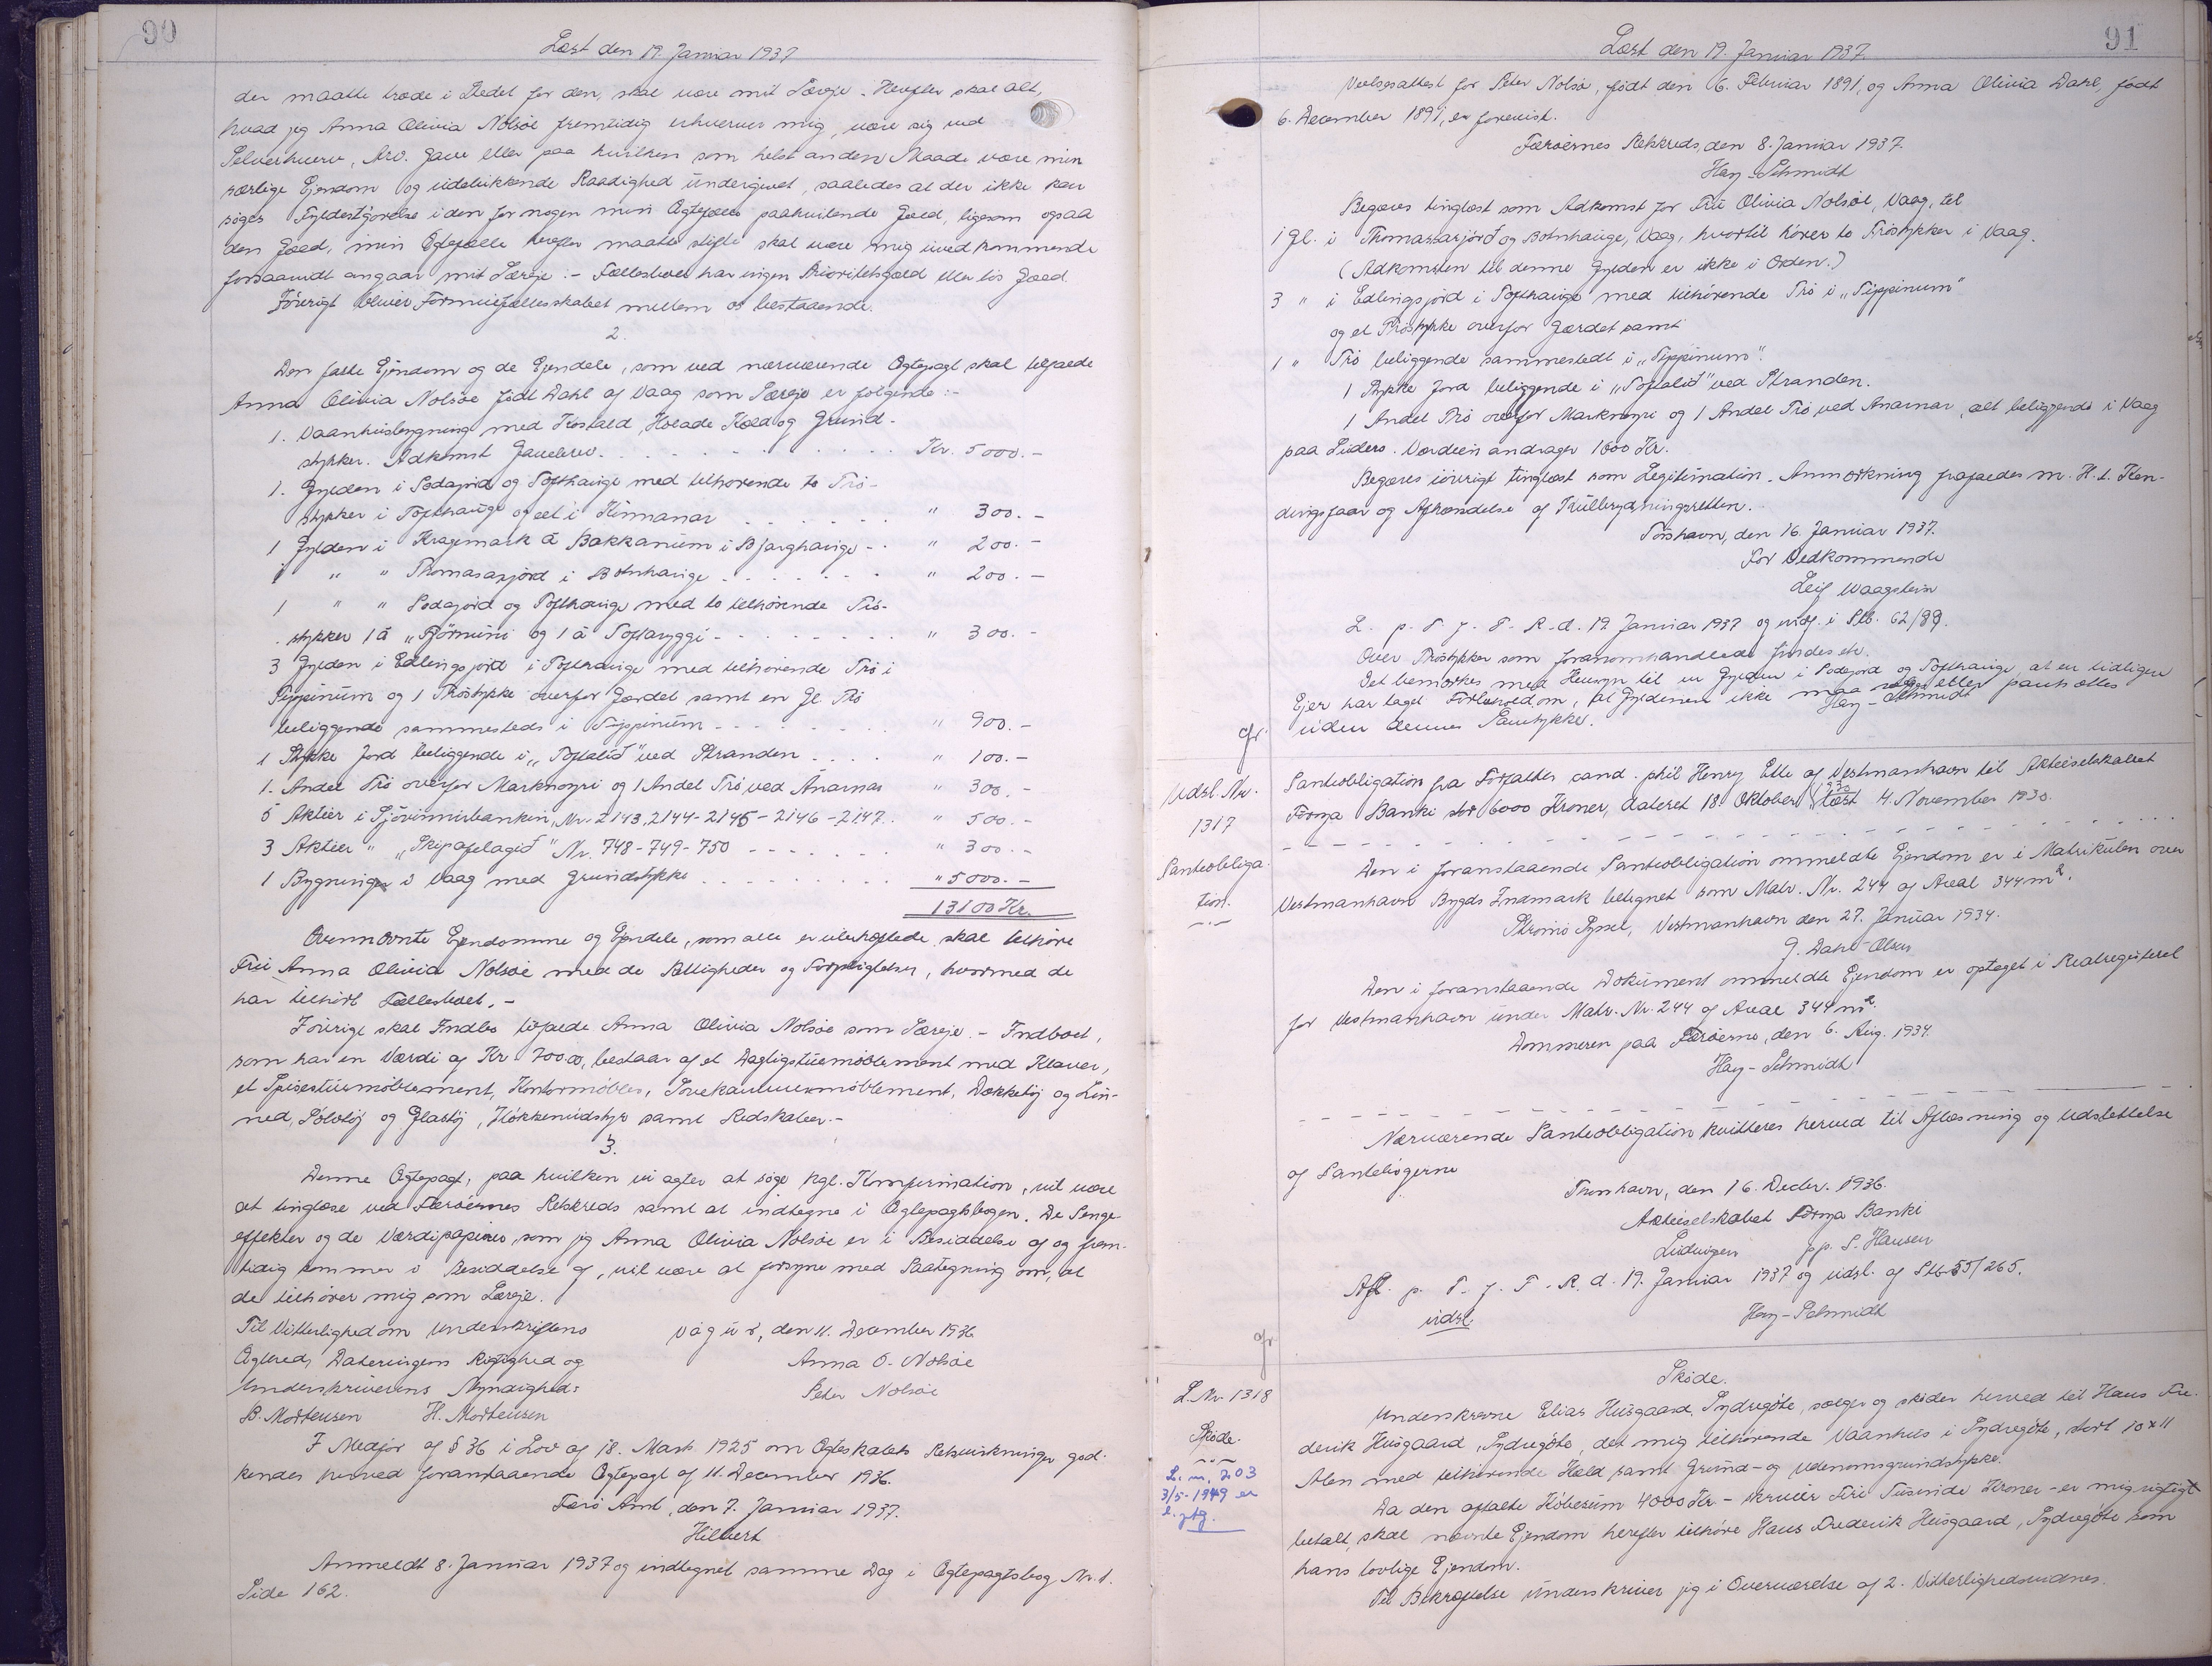 90
Læst den 19. Januar 1937
der maatte træde i Stedet for den, skal være mit Særeje. Herefter skal alt,
hvad jeg Anna Olivia Nolsöe fremtidig erhverver mig, være sig ved
Selverhverv, Arv. Gave eller paa hvilken som helst anden Maade være min
særlige Ejendom og udelukkende Raadighed undergivet, saaledes at der ikke kan
söges Fyldestgörelse i den for nogen min Ægtefælle paahvilende Gæld, ligesom ogsaa
den Gæld, min Ægtefælle herefter maatte stifte skal være mig uvedkommende
forsaavidt angaar mit Særeje. - Fællesboet har ingen Prioritetsgæld eller lös Gæld.
Iövrigt bliver Formuefællesskabet mellem os bestaaende.
2.
Den faste Ejendom og de Ejendele, som ved nærværende Ægtepagt skal tilfalde
Anna Olivia Nolsöe födt Dahl af Vaag som Særeje er fölgende:-
1. Vaanhusbygning med Kostald, Hoelade Hold og Grund-
stykker. Adkomst Gavebrev. Kr. 5000.-
1. Gylden i Sodajord og Tofthauge med tilhörende to Trö-
stykker i Tofthauge og eet i Kinnanar " 300.-
1 Gylden i Kragemark á Bakkanum i Bjarghauge " 200.-
1 " " Thomasarjörd i Botnhauge " 200.-
1 " " Sodajörd og Tofthauge med to tilhörende Trö-
stykker 1 á " og 1 á Toftaryggi " 300.-
3 Gylden i Edlingsjörd i Tofthauge med tilhörende Trö i
Sippinum og 1 Tröstykke overfor Gærdet samt en Gl. Trö
beliggende sammesteds i Sippinum " 900.-
1 Stykke Jord beliggende i "Toftalid" ved Stranden " 100.-
1. Andel Trö overfor Marknoyri og 1 Andel Trö ved Ánarnar " 300.-
5 Aktier i Sjóvinnubanken, Nr. 2143, 2144-2145-2146-2147. " 500.-
3 Aktier " "Skipafelagid" Nr. 748-749-750 " 300.-
1 Bygninger i Vaag med Grundstykke " 5000.-
13100 Kr.
Ovennævnte Ejendomme og Ejendele, som alle er ubehæftede skal tilhöre
Frü Anna Olivia Nolsöe med de Rettigheder og Forpligtelser, hvormed de
har tilhört Fællesboet.-
Iövrigt skal Indbo tilfalde Anna Olivia Nolsöe som Særeje.- Indboet,
som har en Værdi af Kr 700.00, bestaar af et Dagligstuemöblement med Klaver,
et Spisestuemöblement, Kontormöbler, Sovekammermöblement, Dækketöj og Lin-
ned, Sölvtöj og Glastöj, Kökkenudstyr samt Redskaber.-
3.
Denne Ægtepagt, paa hvilken vi agter at söge kgl. Konfirmation, vil være
at tinglæse ved Færöernes Retskreds samt at indtegne i Ægtepagtsbogen. De Penge-
effekter og de Værdipapirer, som jeg Anna Olivia Nolsöe er i Besiddelse af og frem-
tidig kommer i Besiddelse af, vil være at forsyne med Paategning om, at
de tilhörer mig som Særeje.
Til Vitterlighed om Underskriftens Vág ü r, den 11. December 1936
Ægthed, Dateringens Rigtighed og Anna O. Nolsöe
Underskriverens Myndighed: Peter Nolsöe
B. Mortensen H. Mortensen
I Medför af § 36 i Lov af 18. Marts 1925 om Ægteskabets Retsvirkninger god-
kendes herved foranstaaende Ægtepagt af 11. December 1936.
Færö Amt, den 7. Januar 1937.
Hilbert
Anmeldt 8. Januar 1937 og indtegnet samme Dag i Ægtepagtsbog Nr. 1.
Side 162.
91
Læst den 19. Januar 1937.
Vielsesattest for Peter Nolsö, födt den 6. Februar 1891, og Anna Olivia Dahl, födt
6. December 1891, er forevist.
Færöernes Retskreds, den 8. Januar 1937.
Hay-Schmidt
Begæres tinglæst som Adkomst for Frü Olivia Nolsöe, Vaag, til
1 Gl. i Thomasarjörd og Botnhauge, Vaag, hvortil hörer to Tröstykker i Vaag.
(Adkomsten til denne Gylden er ikke i Orden.)
3 " i Edlingsjörd i Tofthauge med tilhörende Trö i "Sippinum"
og et Tröstykke overfor Gærdet samt
1 " Trö beliggende sammestedt i "Sippinum".
1 Stykke Jord beliggende i "Toftalid" ved Stranden.
1 Andel Trö overfor Marknoyri og 1 Andel Trö ved Anarnar, alt beliggende i Vaag
paa Suderö. Værdien andrager 1600 Kr.
Begæres iövrigt tinglæst som Legitimation. Anmærkning frafaldes m. H. t. Ken-
delsgaar og Afhændelse af Trülbrydningsretten.
Tórshavn, den 16. Januar 1937.
For Vedkommende
Leif Waagstein
L. p. T. f. F. R. d. 19 Januar 1937 og indf. i Stb. 62/89.
Over Tröstykker som foranomhandlede findes ek.
Det bemærkes med Hensyn til en Gylden i Sodajord og Tofthauge, at en tidligere
Ejer har taget Forbehold om, at Gyldenen ikke maa sælges eller pantsættes
uden dennes Samtykke. Hay-Schmidt
Gr.
Udsl. Nr.
1317
Panteobliga-
tion.
Panteobligation fra Forfatter cand. phil Henry Elle af Vestmanhavn til Aktieselskabet
Föroya Banki stor 6000 Kroner, dateret 18 Oktober 1930 læst 4. November 1930.
Den i foranstaaende Panteobligation ommeldte Ejendom er i Matrikulen over
Vestmanhavn Bygds Indmark betegnet som Matr. Nr. 244 af Areal 344 m².
Strömö Syssel, Vestmanhavn den 27. Januar 1934.
J. Dahl-Olsen
Den i foranstaaende Dokument ommeldte Ejendom er optaget i Realregisteret
for Vestmanhavn under Matr. Nr. 244 af Areal 344 m².
Dommeren paa Færöerne, den 6. Aug. 1934.
Hay-Schmidt
Nærværende Panteobligation kvitteres herved til Aflæsning og Udslettelse
af Pantebögerne
Thorshavn, den 16. Decbr. 1936.
Aktieselskabet Föroya Banki
pp. S. Hansen
Afl. p. T. f. F. R. d. 19. Januar 1937 og udsl. af Stb 55/265.
udsl. Hay-Schmidt
Gr
L. Nr 1318
Sköde.
L. n. 203
3/5-1949 er
Sköde.
Underskrevne Elias Husgaard, Sydregöte, sælger og sköder herved til Hans Fre-
derik Husgaard, Sydregöte, det mig tilhörende Vaanhus i Sydregöte, stort 10 x 11
Alen med tilhörende Hæld samt Grund- og Udenomsgrundstykke.
Da den aftalte Köbesum 4000 Kr - skriver Fire Tusinde Kroner - er mig rigtigt
betalt, skal nævnte Ejendom herefter tilhöre Hans Frederik Husgaard, Sydregöte som
hans lovlige Ejendom.
Til Bekræftelse underskriver jeg i Overværelse af 2. Vitterlighedsvidner.